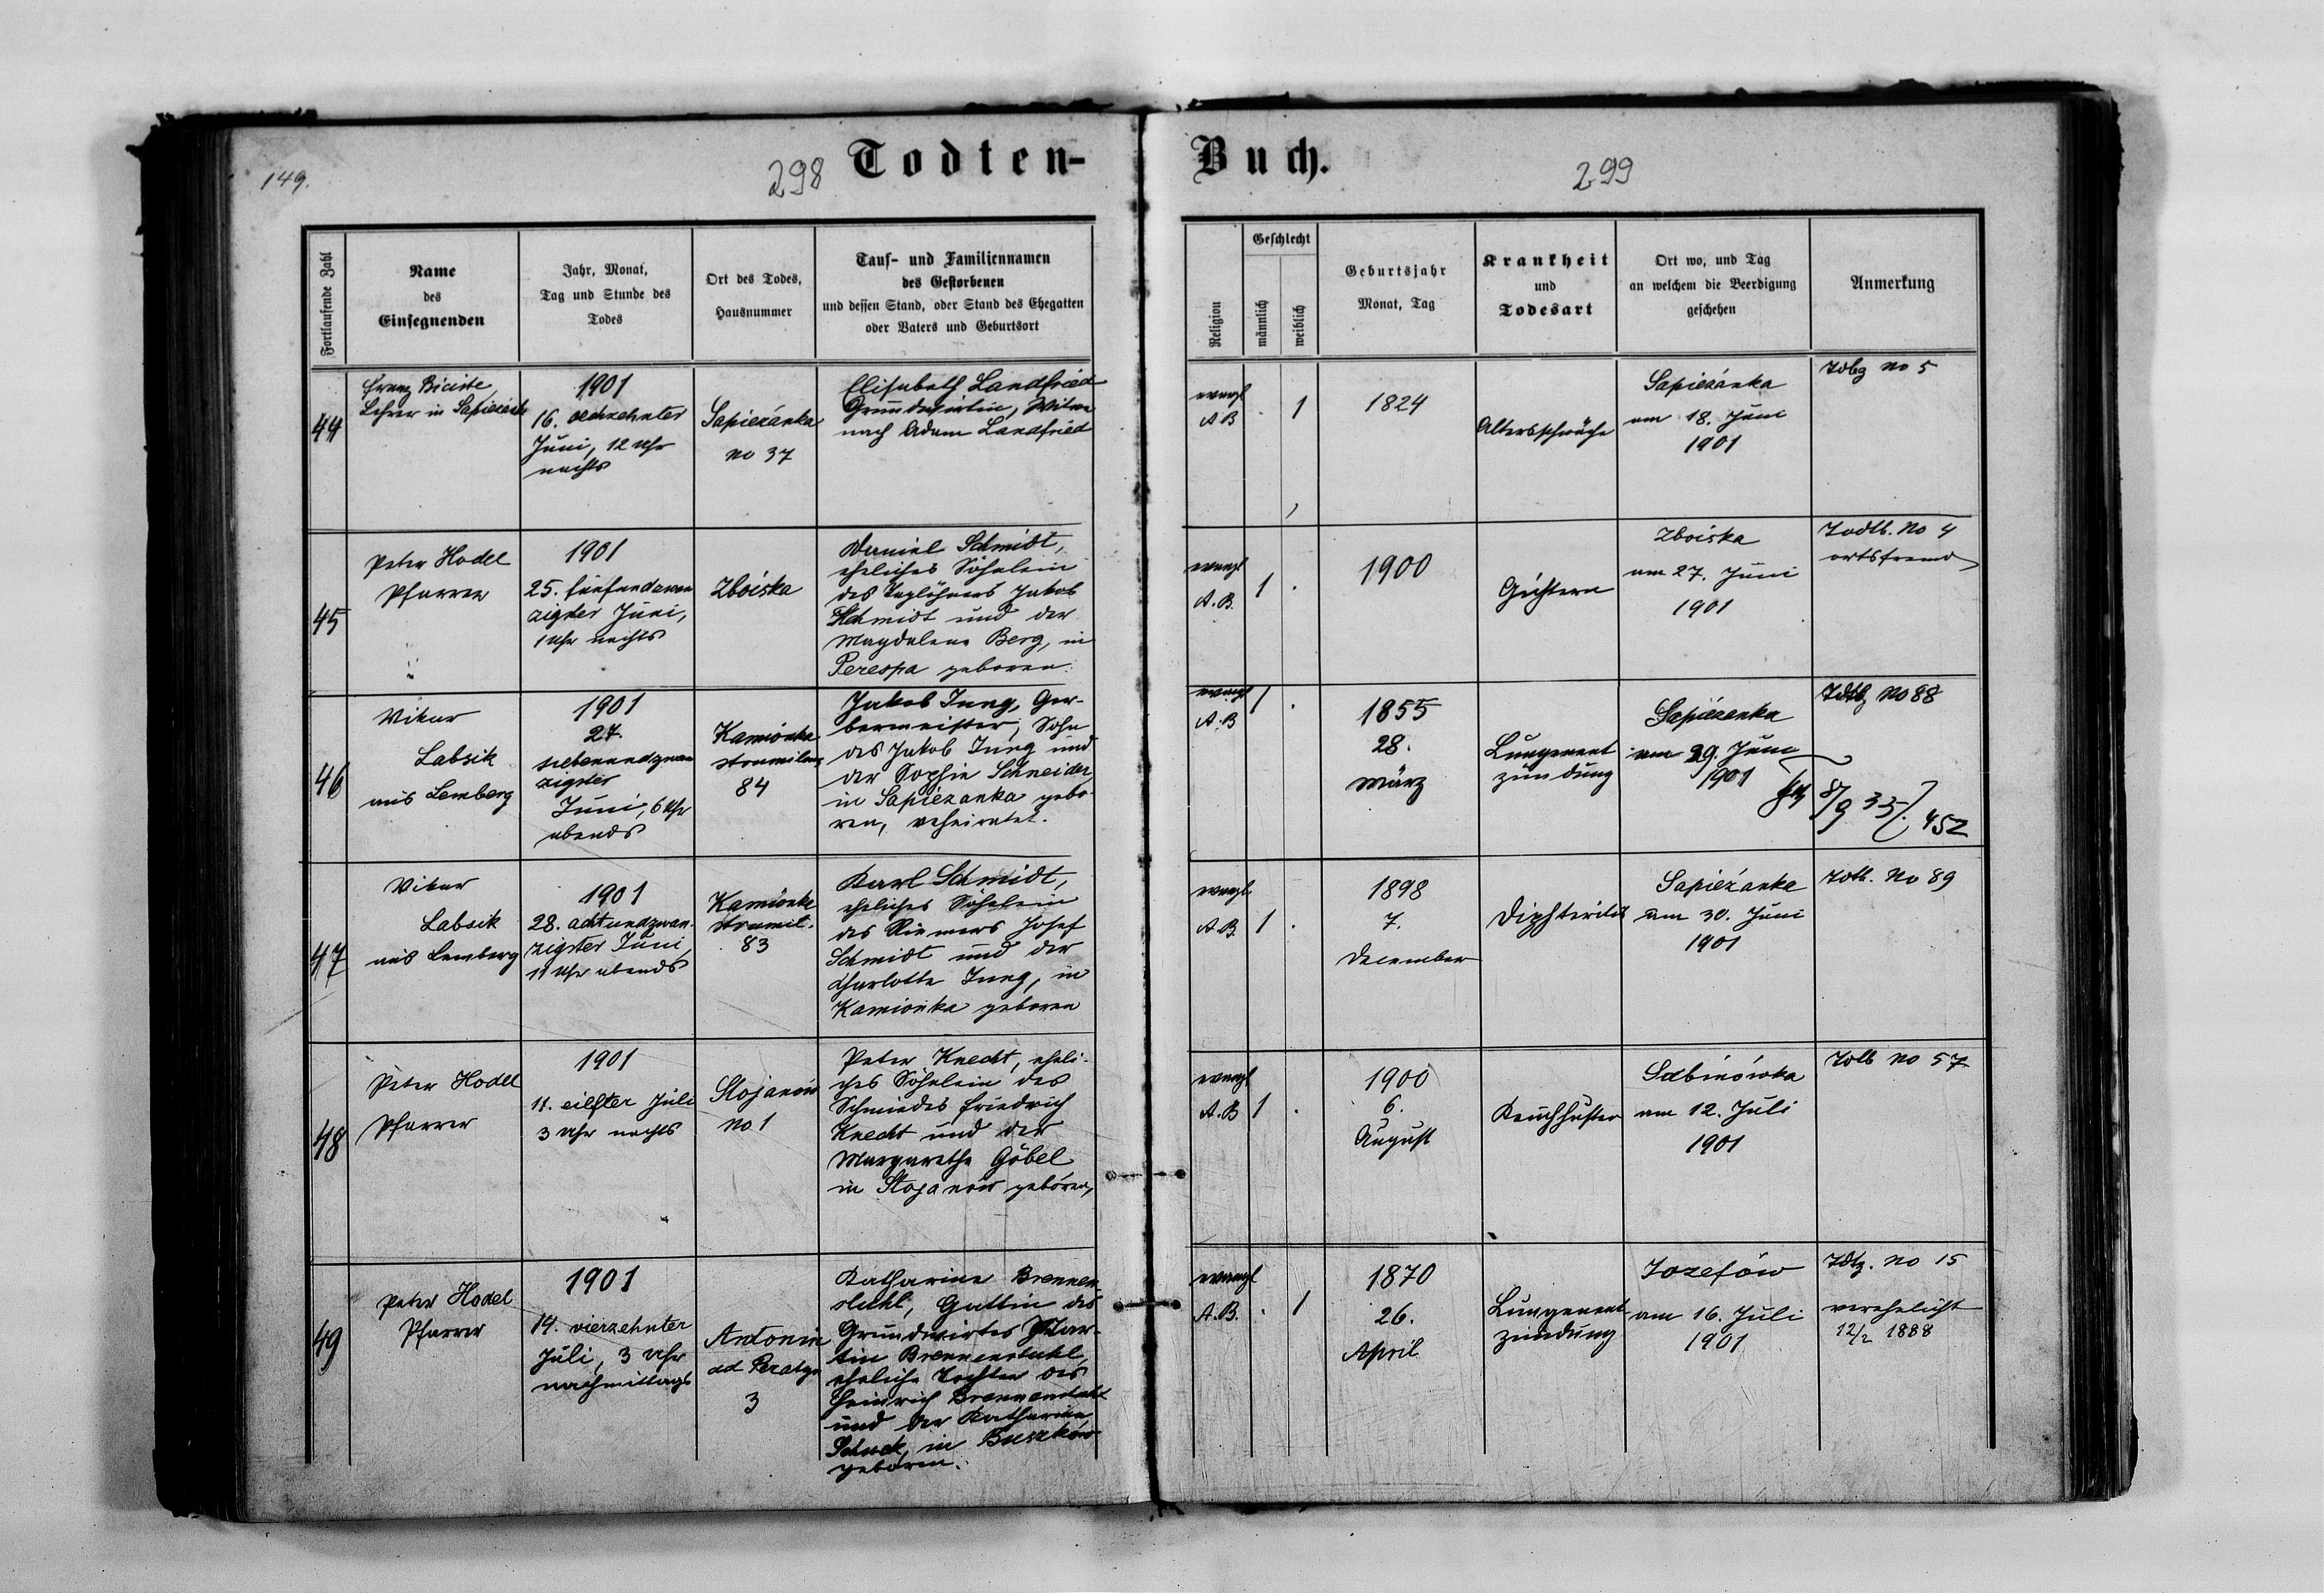 149.
298
Todten-
Buch.
299
Fortlaufende Zahl
Name
des
Einsegnenden
Jahr, Monat,
Tag und Stunde des
Todes
Ort des Todes,
Hausnummer
Tauf- und Familiennamen
des Gestorbenen
und dessen Stand, oder Stand des Ehegatten
oder Vaters und Geburtsort
Religion
Geschlecht
männlich
weiblich
Geburtsjahr
Monat, Tag
Krankheit
und
Todesart
Ort wo, und Tag
an welchem die Beerdigung
geschehen
Anmerkung
44
Franz
Lehrer in
1901
16.
Juni, 12 Uhr
nachts
Sapieżanka
no 37
Elisabeth Landfried
Grundwirtin, Witwe
nach Adam Landfried
evangl
A B
1
1824
Altersschwäche
Sapieżanka
am 18. Juni
1901
no 5
45
Peter Hodel
Pfarrer
1901
25. fünfundzwan
zigster Juni,
1 Uhr nachts
Zboiska
Daniel Schmidt,
eheliches Söhnlein
des Taglöhners Jakob
Schmidt und der
Magdalena Berg, in
Perespa geboren.
evangl
A. B.
1
1900
Zboiska
am 27. Juni
1901
Todtb. No 4
ortsfremd
46
Vikar
Labsik
aus Lemberg
1901
27.
siebenundzwan
zigster
Juni, 6 Uhr
abends
Kamionka
strumilowa
84
Jakob Jung, Ger-
bermeister, Sohn
des Jakob Jung und
der Sophie Schneider,
in Sapiezanka gebo-
ren, verheiratet.
evangl
A. B
1
1855
28.
März
Lungenent
zündung
Sapiezanka
am 29. Juni
1901
No 88
8/9 35/. 452
47
Vikar
Labsik
aus Lemberg
1901
28. achtundzwan-
zigster Juni,
11 Uhr abends
Kamionka
strumil.
83
Karl Schmidt,
eheliches Söhnlein
des Riemers Josef
Schmidt und der
Charlotte Jung, in
Kamionka geboren
evangl
A. B.
1
1898
7.
December
Diphteritis
Sapieżanka
am 30. Juni
1901
Todtb. No 89
48
Peter Hodel
Pfarrer
1901
11. eilfter Juli
3 Uhr nachts
Stojanów
No 1
Peter Knecht, eheli-
ches Söhnlein des
Schmiedes Friedrich
Knecht und der
Margarethe Göbel
in Stojanów geboren,
evangl
A. B
1
1900
6.
August
Keuchhusten
Sabinówka
am 12. Juli
1901
Todtb No 57
49
Peter Hodel
Pfarrer
1901
14. vierzehnter
Juli, 3 Uhr
nachmittags
Antonin
ad
3
Katharina Brennen
stuhl, Gattin des
Grundwirtes Mar-
tin Brennenstuhl,
eheliche Tochter des
Heinrich Brennenstuhl
und der Katharina
Schuck, in Buszków
geboren.
evangl
A. B.
1
1870
26.
April
Lungenent
zündung
Jozefów
am 16. Juli
1901
no 15
verehelicht
12/2 1888